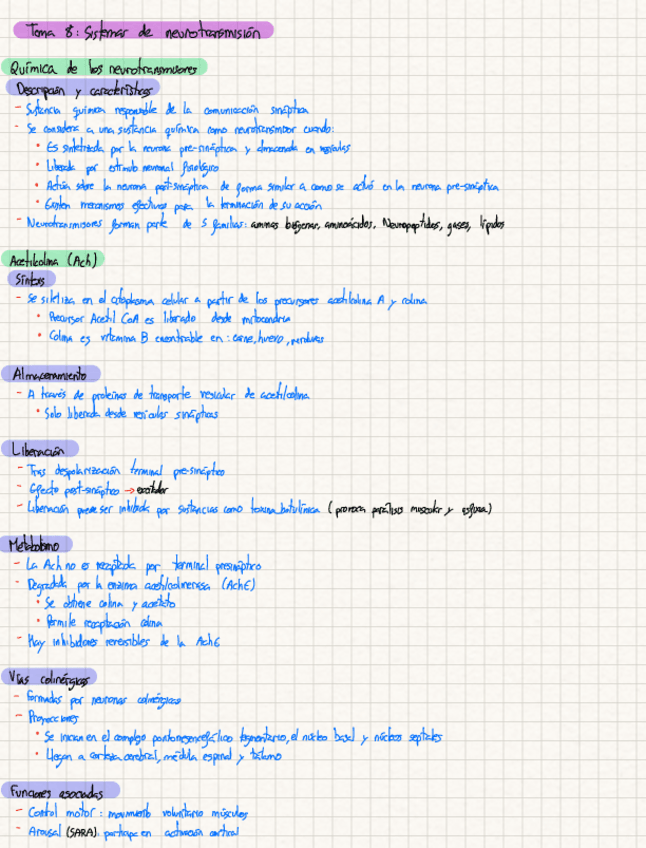 Tema 8: Sistemas de neurotransmisión
Química de los neurotransmisores
Descripción y características
- Sustancia química responsable de la comunicación sináptica
- Se considera a una sustancia química como neurotransmisor cuando:
• Es sintetizada por la neurona pre-sináptica y almacenada en vesículas
• Liberada por estímulo neuronal fisiológico
• Actúa sobre la neurona post-sináptica de forma similar a como se actuó en la neurona pre-sináptica
• Existen mecanismos efectivos para la terminación de su acción
- Neurotransmisores forman parte de 5 familias: aminas biógenas, aminoácidos, Neuropéptidos, gases, lípidos
Acetilcolina (Ach)
Síntesis
- Se sintetiza en el citoplasma celular a partir de los precursores acetilcolina A y colina
• Precursor Acetil CoA es liberado desde mitocondria
• Colina es vitamina B encontrable en: carne, huevo, verduras
Almacenamiento
- A través de proteínas de transporte vesicular de acetilcolina
• Solo liberada desde vesículas sinápticas
Liberación
- Tras despolarización terminal pre-sináptico
- Efecto post-sináptico → excitador
- Liberación puede ser inhibida por sustancias como toxina botulínica (provoca parálisis muscular y asfixia)
Metabolismo
- La Ach no es recaptada por terminal presináptico
- Degradada por la enzima acetilcolinerasa (AchE)
• Se obtiene colina y acetato
• Permite recaptación colina
- Hay inhibidores reversibles de la AchE
Vías colinérgicas
- Formadas por neuronas colinérgicas
- Proyecciones
• Se inician en el complejo pontomesencefálico tegmentario, el núcleo basal y núcleos septales
• Llegan a corteza cerebral, médula espinal y tálamo
Funciones asociadas
- Control motor: movimiento voluntario músculos
- Arousal (SARA): participa en activación cortical